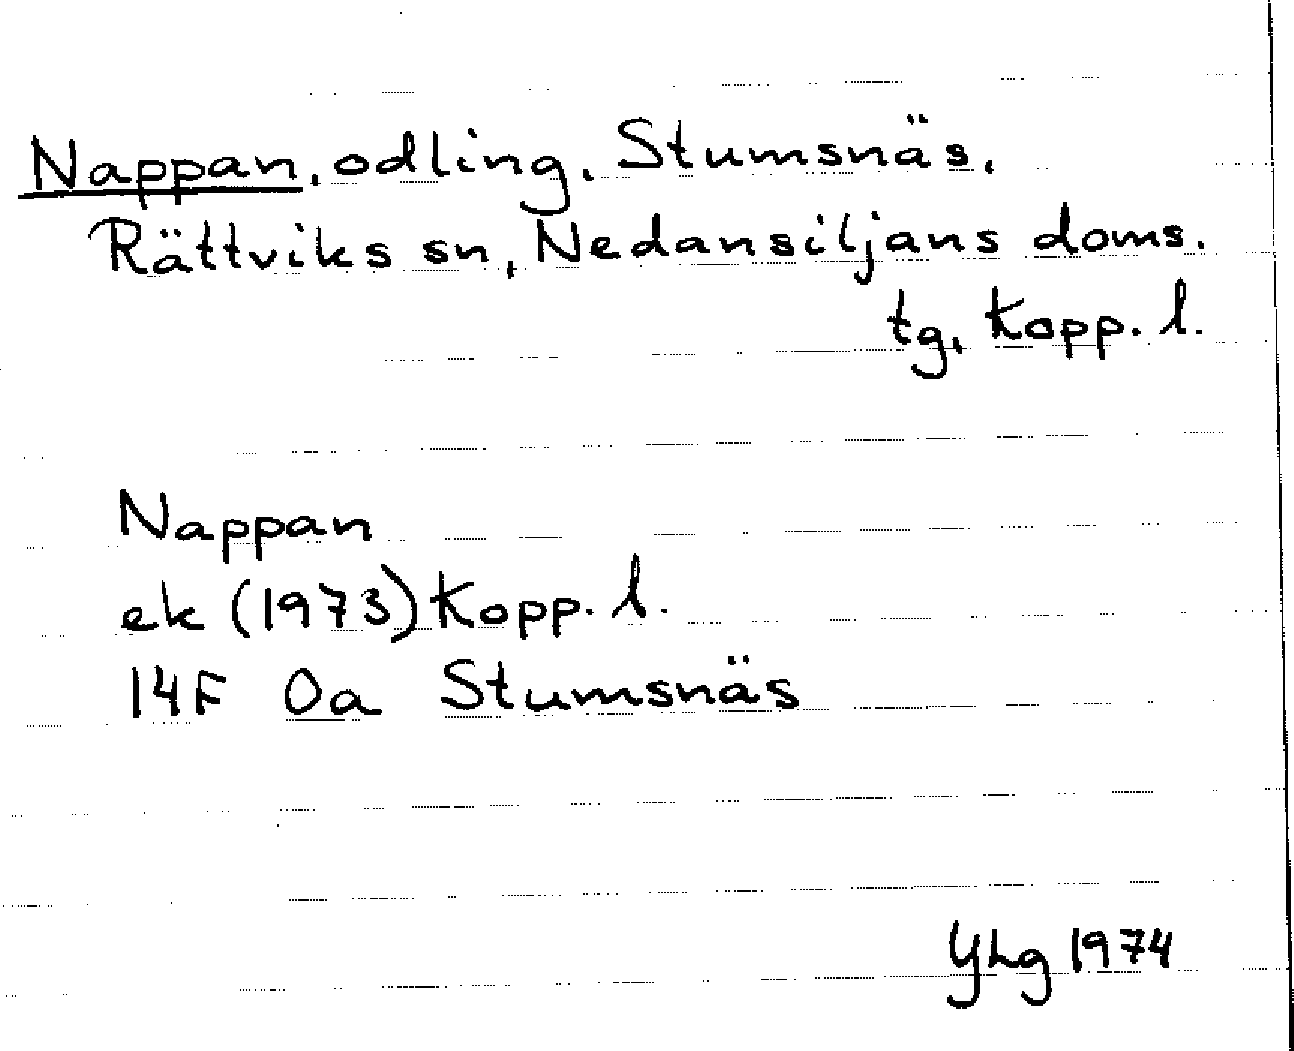 Nappan, odling, Stumsnäs,
Rättviks sn, Nedansiljans doms.
tg, Kopp. l.
Nappan
ek (1973) Kopp. l.
14F 0a Stumsnäs
YHg 1974